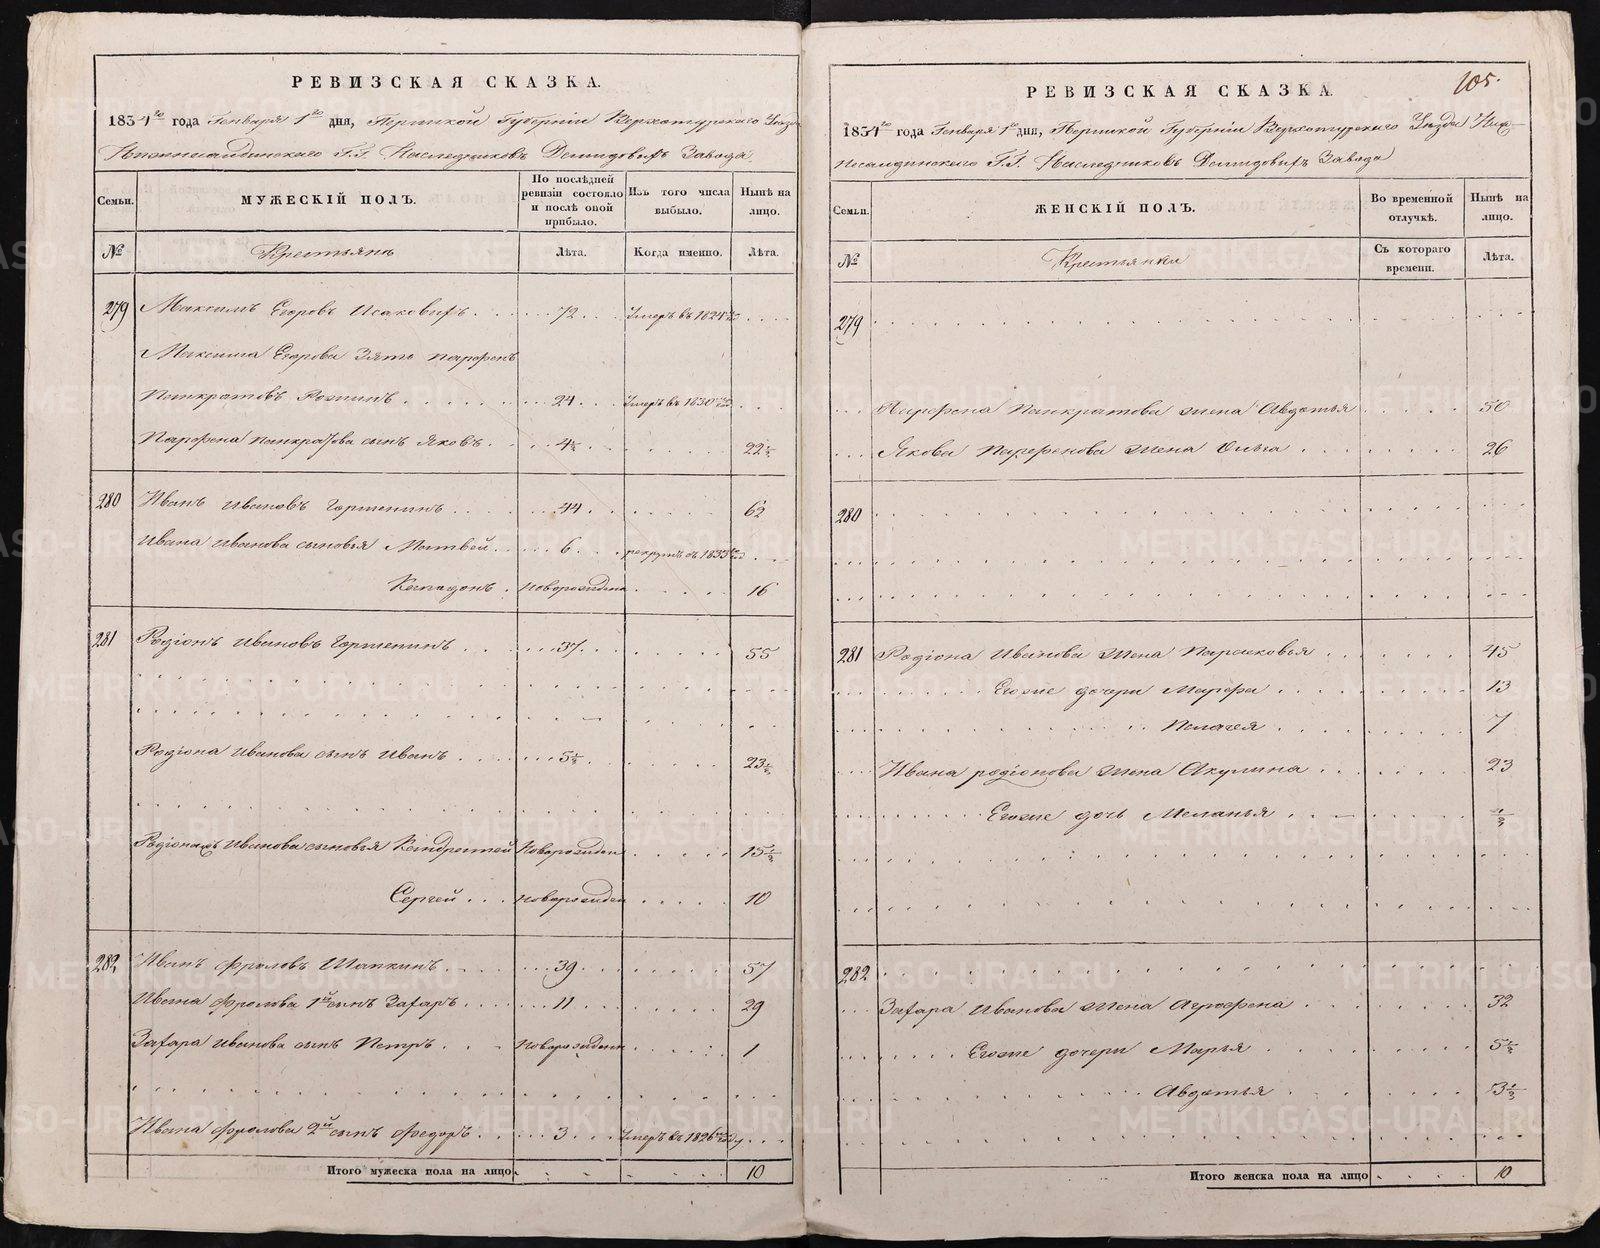 РЕВИЗСКАЯ СКАЗКА.
1834го года Генваря 1го дня, Пермской Губерніи Верхотурскаго Уезда
Нижнесалдинскаго Г.Г. Наследниковъ Демидовыхъ Завода.
Семьи.
МУЖЕСКІЙ ПОЛЪ.
По послѣдней ревизіи состояло и послѣ оной прибыло.
Изъ того числа выбыло.
Нынѣ на лицо.
№
Крестьянъ
Лѣта.
Когда именно.
Лѣта.
279 Максимъ Егоровъ Исаковыхъ 72 Умеръ въ 1824
Максима Егорова Зять Парфенъ
Панкратовъ 24 Умеръ въ 1830
Парфена Панкратова сынъ Яковъ 4½ 22½
280 Иванъ Ивановъ Горшенинъ 44 62
Ивана Иванова сыновья Матвей 6 рекрутъ въ 1833
Новорожденъ 16
281 Родіонъ Ивановъ Горшенинъ 37 55
Родіона Иванова сынъ Иванъ 5½ 23½
Иванова сыновья Новорожден 15½
Сергей Новорожден 10
282 Иванъ Фроловъ Шапкинъ 39 57
Ивана Фролова 1й сынъ Захаръ 11 29
Захара Иванова сынъ Петръ Новорожденъ 1
Ивана Фролова 2й сынъ Федоръ 3 Умеръ въ 1826
Итого мужеска пола на лицо 10
105.
РЕВИЗСКАЯ СКАЗКА.
1834го года Генваря 1го дня, Пермской Губерніи Верхотурскаго Уезда Ниж-
несалдинскаго Г.Г. Наследниковъ Демидовыхъ Завода
Семьи.
ЖЕНСКІЙ ПОЛЪ.
Во временной отлучкѣ.
Нынѣ на лицо.
№
Крестьянки
Съ котораго времени.
Лѣта.
279
Парфена Панкратова жена Авдотья 50
Якова Парфенова жена Ольга 26
280
281 Родіона Иванова жена Парасковья 45
Егоже дочери Марфа 13
Пелагея 7
Ивана родіонова жена Акулина 23
Егоже дочь Меланья ½
282
Захара Иванова жена Агрофена 32
Егоже дочери Марья 5½
Авдотья 3½
Итого женска пола на лицо 10
METRIKI.GASO-URAL.RU